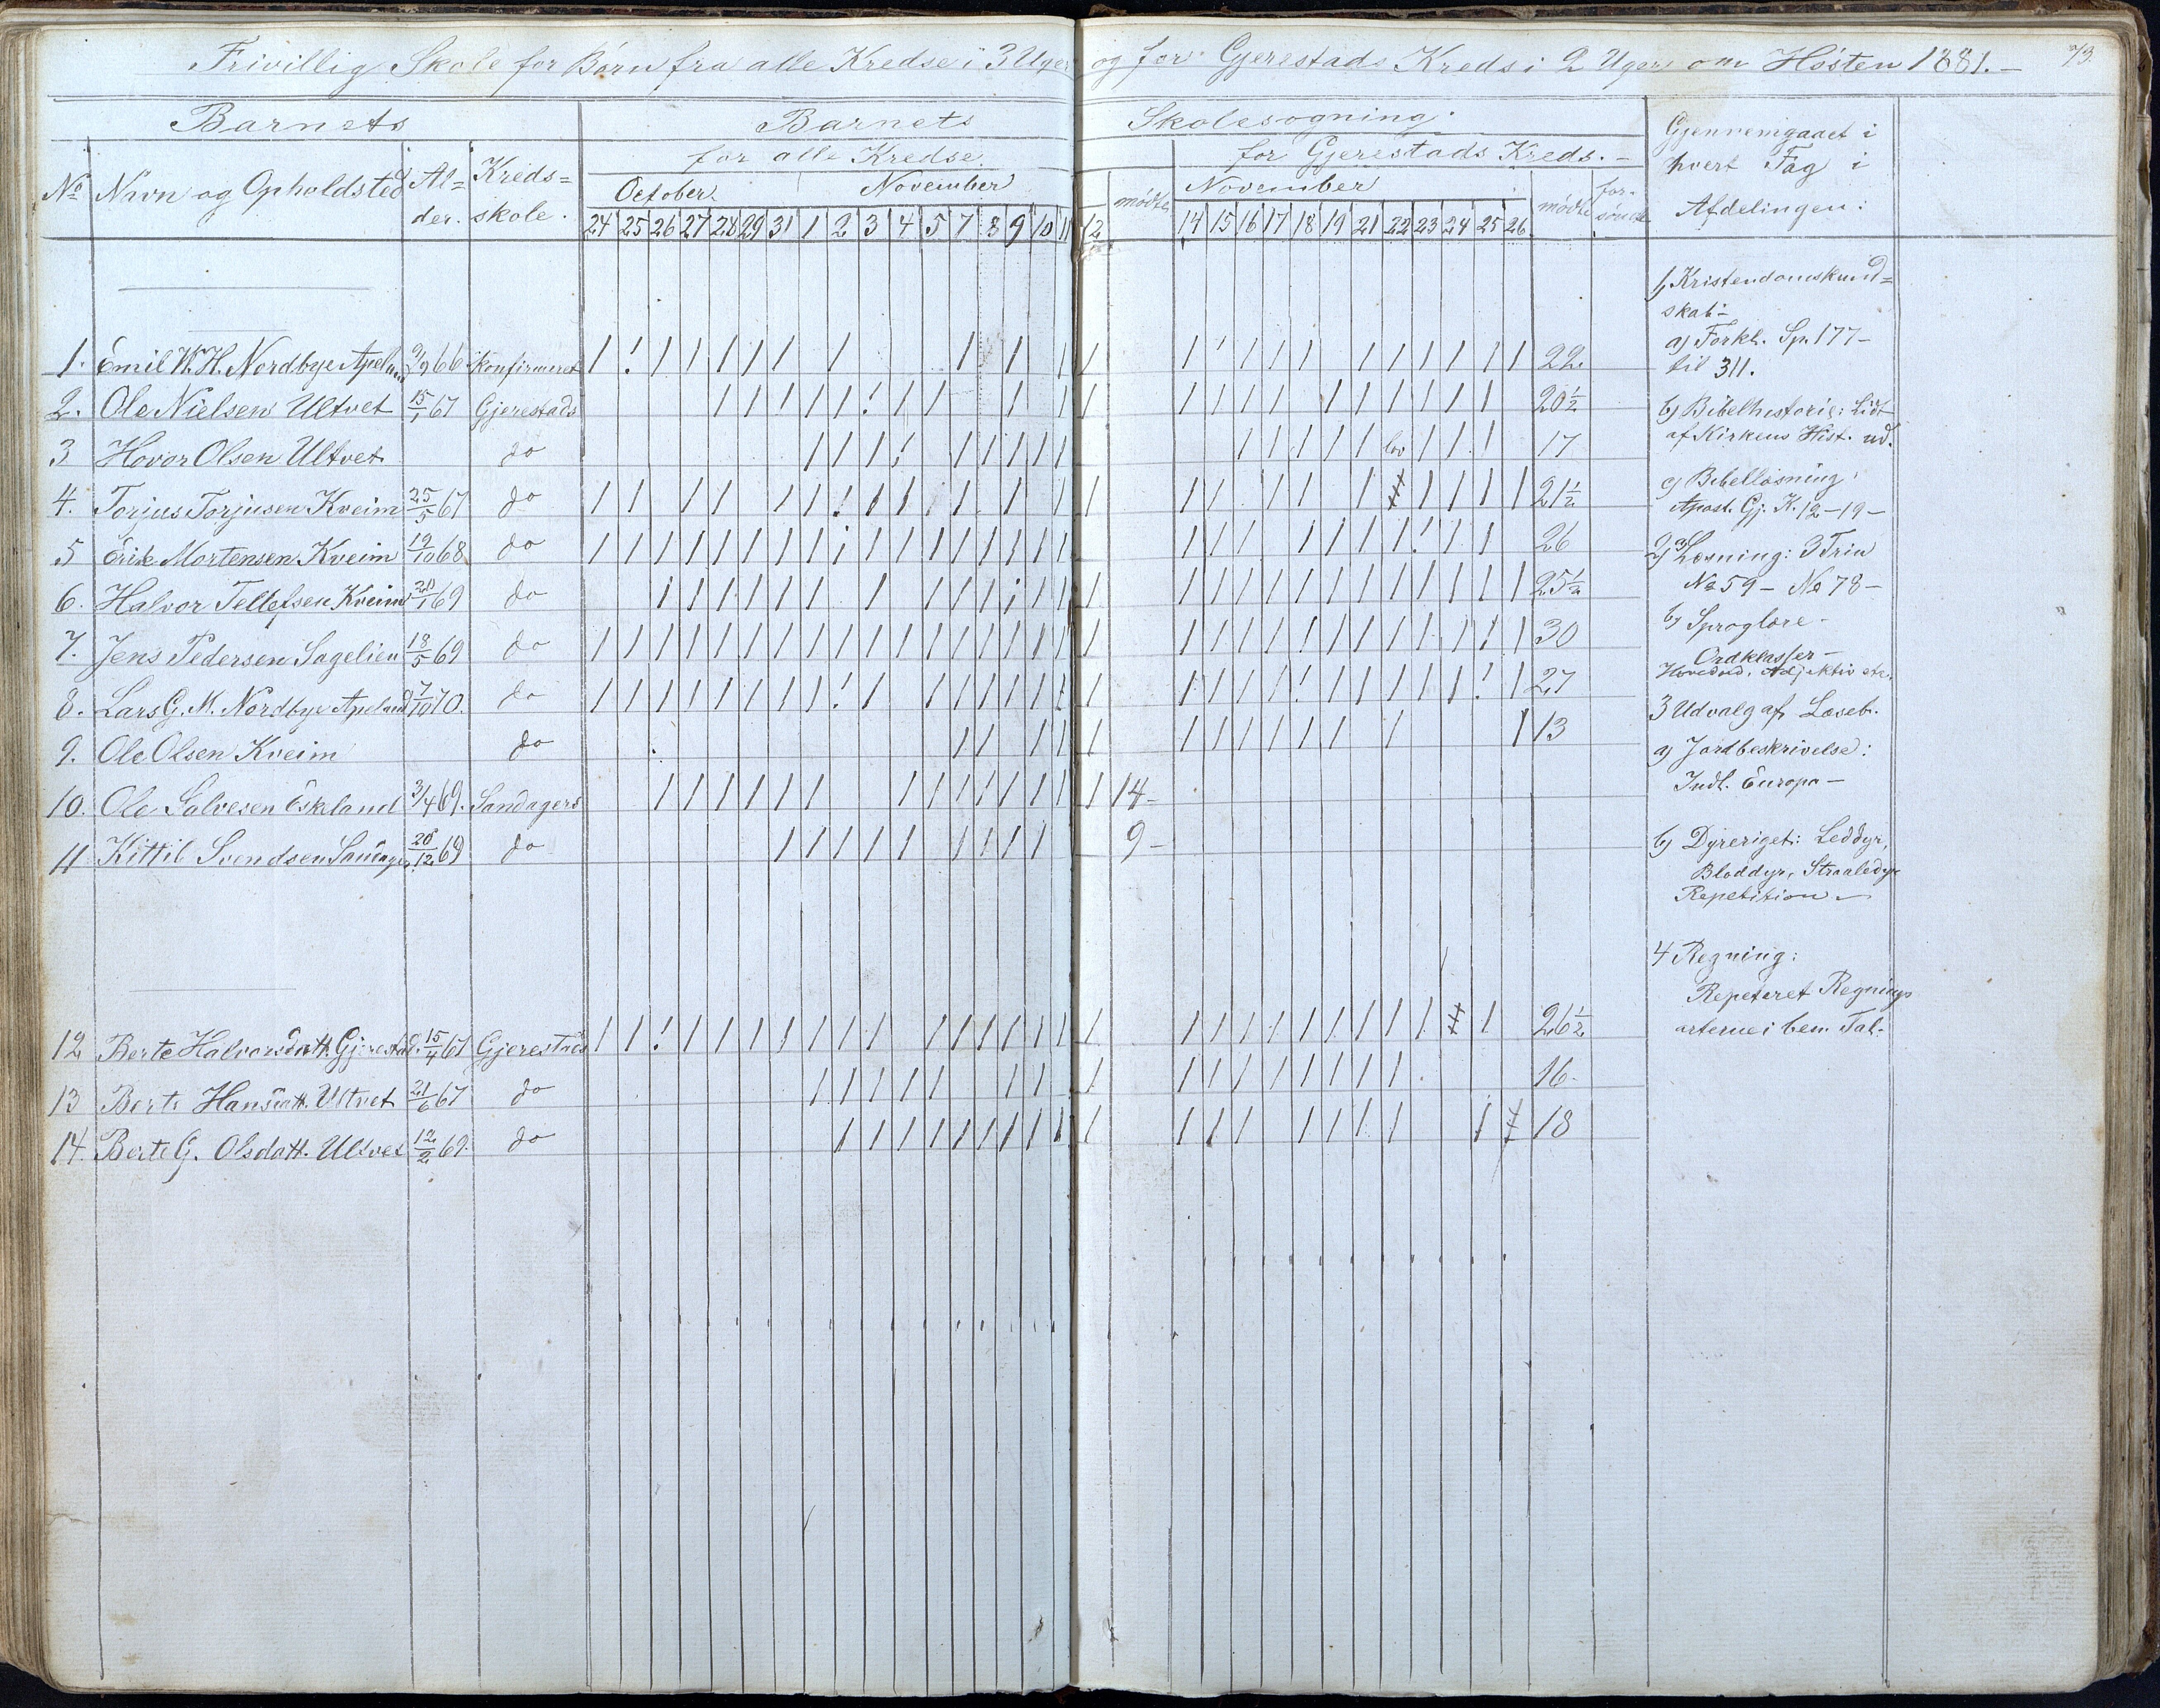 Frivillig Skole for Børn fra alle Kredse i 3 Uger og for Gjerestads Kreds i 2 Uger om Høsten 1881. — 73.
Barnets Barnets Skolesøgning.
for alle Kredse for Gjerestads Kreds. —
No Navn og Opholdsted Al=der. Kreds=skole. October November mødte November mødte for=sømte
24 25 26 27 28 29 31 1 2 3 4 5 7 8 9 10 11 12 14 15 16 17 18 19 21 22 23 24 25 26
1. Emil W. H. Nordbye Apeland 2/9 66 konfirmeret 22
2. Ole Nielsen Ultvet 15/1 67 Gjerestads 20½
3 Hovor Olsen Ultvet do 17
4. Torjus Torjusen Kveim 25/5 67 do 21½
5 Erik Mortensen Kveim 19/10 68 do 26
6. Halvor Tellefsen Kveim 20/1 69 do 25½
7. Jens Pedersen Sagelien 18/5 69 do 30
8. Lars G. M. Nordbye Apeland 7/10 70. do 27
9. Ole Olsen Kveim do 13
10. Ole Salvesen Eskeland 3/4 69. Sandagers 14 —
11 Kittil Svendsen 20/12 69 do 9 —
12 Berte Halvorsdatt. Gjerestad. 15/4 67 Gjerestads 26½
13 Berte Hansdatt. Ultvet 21/6 67 do 16.
14. Berte G. Olsdatt. Ultvet 12/2 69. do 18
Gjennemgaaet i
hvert Fag i
Afdelingen:
1, Kristendomskund=
skab —
a) Forkl. Sp. 177 —
til 311.
b) Bibelhistorie: Lidt
af Kirkens Hist. ud.
c) Bibellæsning:
Apost. Gj. K. 12 — 19 —
2, a) Læsning: 3 Trin
No 59 — No 78 —
b) Sproglære —
Ordklasser —
Hovedord, Adjektiv etc.
3 Udvalg af Læseb.
a) Jordbeskrivelse:
Indl. Europa —
b) Dyreriget: Leddyr,
Bløddyr, Straaledyr
Repetition —
4 Regning:
Repeteret Regnings
arterne i ben. Tal.